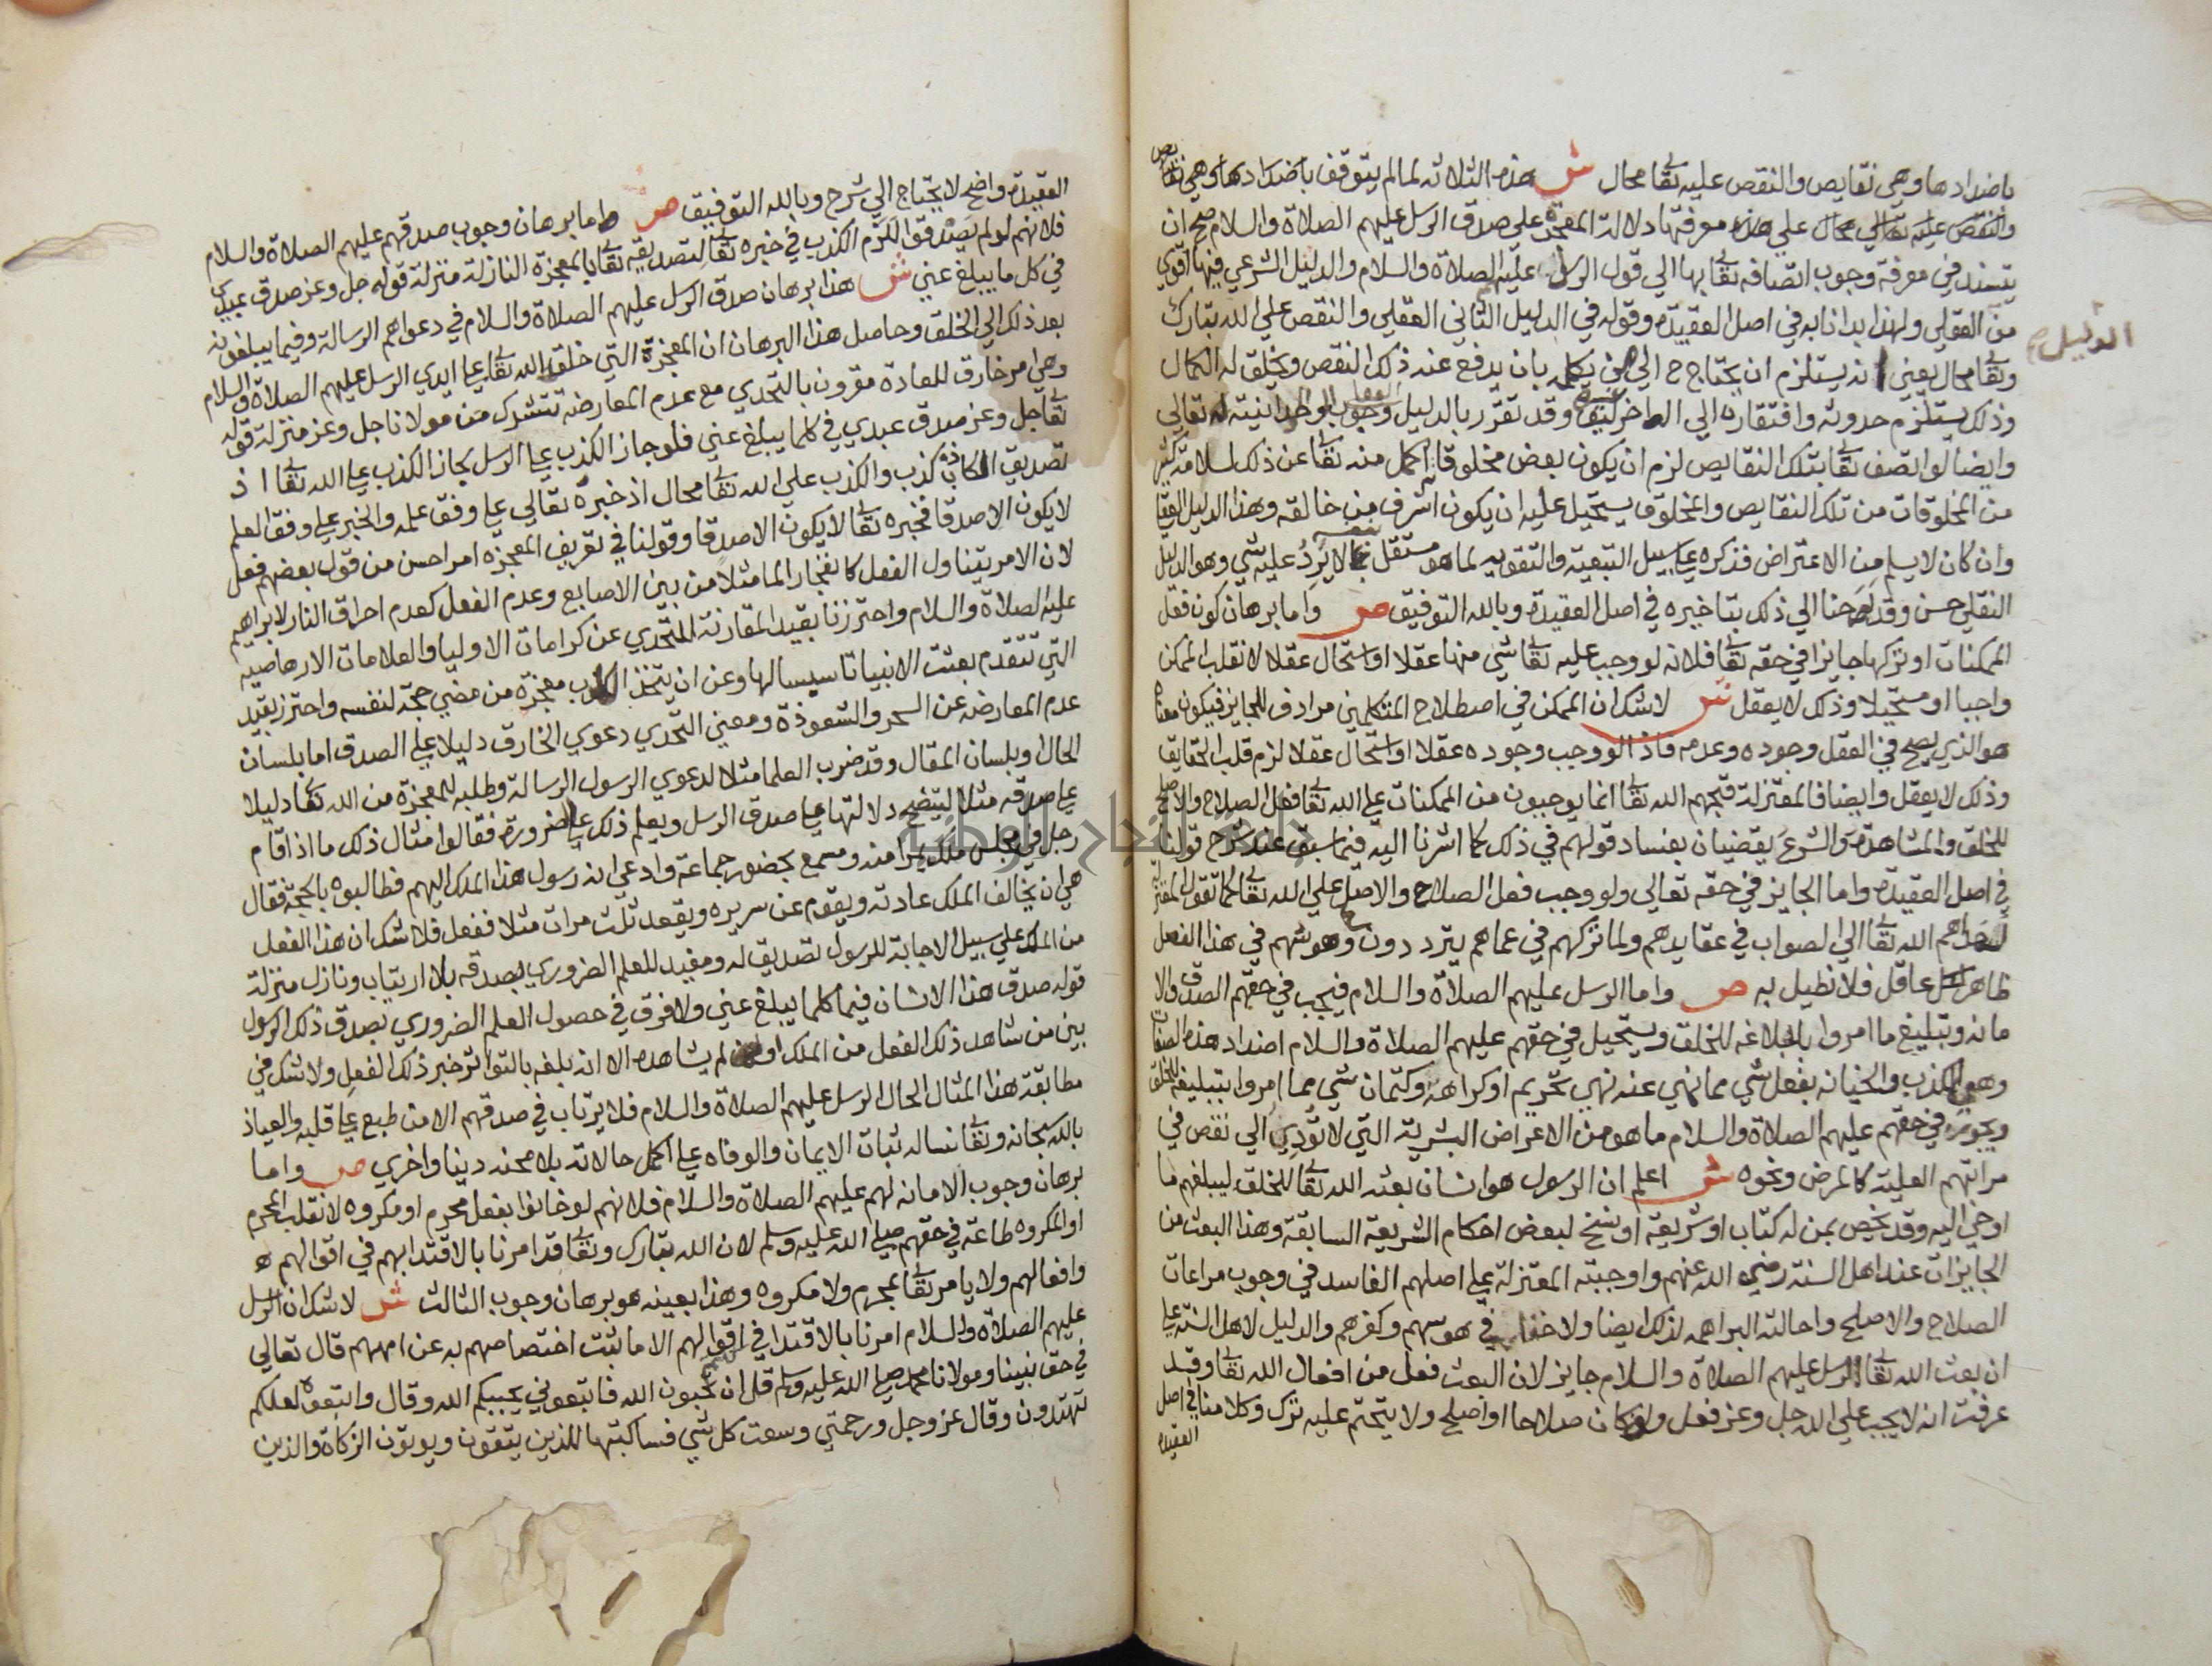 باضدادها وهي نقايص والنقص عليه تعا محال ش هذه الثلاثة لما لم يتوقف باضدادها وهي نقايص
والنقص عليه تعالي محال علي معرفتها دلالة المعجزة علي صدق الرسل عليهم الصلاة والسلام صح ان
يستند في معرفة وجوب اتصافه تعا بها الي قول الرسل عليهم الصلاة والسلام والدليل الشرعي فيها اقوي
من العقلي ولهذا بدانا به في اصل العقيدة وقوله في الدليل الثاني العقلي والنقص علي الله تبارك
الدليل
وتعا محال يعني انه يستلزم ان يحتاج ح الي من يكمله بان يدفع عنه ذلك النقص ويخلق له الكمال
وذلك يستلزم حدوثه وافتقاره الي اله اخر وقد تقرر بالدليل وجوب الوحدانية له تعالي
وايضا لو اتصف تعا بتلك النقايص لزم ان يكون بعض مخلوقاته اكمل منه تعا عن ذلك لسلامة كثير
من المخلوقات من تلك النقايص والمخلوق يستحيل عليه ان يكون اشرف من خالقه وهذا الدليل العقلي
وان كان لا يسلم من الاعتراض فذكره علي سبيل التبعية والتقوية لما هو مستقل بنفسه لا يرد عليه شي وهو الدليل
النقلي حسن وقد لوحنا الي ذلك بتاخيره في اصل العقيدة وبالله التوفيق ص واما برهان كون فعل
الممكنات او تركها جايزا في حقه تعا فلانه لو وجب عليه تعا شي منها عقلا او استحال عقلا لانقلب الممكن
واجبا او مستحيلا وذلك لا يعقل ش لا شك ان الممكن في اصطلاح المتكلمين مرادف للجايز فيكون معناه
هو الذي يصح في العقل وجوده وعدمه فاذا لو وجب وجوده عقلا او استحال عقلا لزم قلب الحقايق
وذلك لا يعقل وايضا فالمعتزلة قبحهم الله تعا انما يوجبون من الممكنات علي الله تعا فعل الصلاح والاصلح
للخلق والمشاهدة والشرع يقضيان بفساد قولهم في ذلك كما اشرنا اليه فيما سبق عند شرح قولنا
في اصل العقيدة واما الجايز في حقه تعالي ولو وجب فعل الصلاح والاصلح علي الله تعا كما تقول المعتزلة
لهداهم الله تعا الي الصواب في عقايدهم ولما تركهم في عماهم يترددون وهوسهم في هذا الفصل
ظاهر لكل عاقل فلا نطيل به ص واما الرسل عليهم الصلاة والسلام فيجب في حقهم الصدق والا
مانة وتبليغ ما امروا بابلاغه للخلق ويستحيل في حقهم عليهم الصلاة والسلام اضداد هذه الصفات
وهي الكذب والخيانة بفعل شي مما نهي عنه نهي تحريم او كراهة وكتمان شي مما امروا بتبليغه للخلق
ويجوز في حقهم عليهم الصلاة والسلام ما هو من الاعراض البشرية التي لا تؤدي الي نقص في
مراتبهم العلية كالمرض ونحوه ش اعلم ان الرسول هو انسان بعثه الله تعا للخلق ليبلغهم ما
اوحي اليه وقد يخص بمن له كتاب او شريعة او نسخ لبعض احكام الشريعة السابقة وهذا البعث من
الجايزات عند اهل السنة رضي الله عنهم واوجبته المعتزلة علي اصلهم الفاسد في وجوب مراعات
الصلاح والاصلح واحالته البراهمه لذلك ايضا ولا خفا في هوسهم وكفرهم والدليل لاهل السنة علي
ان بعث الله تعا الرسل عليهم الصلاة والسلام جايز لان البعث فعل من افعال الله تعا وقد
عرفت انه لا يجب علي الله جل وعز فعل ولو كان صلاحا او اصلح ولا يتحتم عليه ترك وكلامنا في اصل
العقيدة
العقيدة واضح لا يحتاج الي شرح وبالله التوفيق ص واما برهان وجوب صدقهم عليهم الصلاة والسلام
فلانهم لو لم يصدقوا للزم الكذب في خبره تعا لتصديقه تعا بالمعجزة النازلة منزلة قوله جل وعز صدق عبدي
في كل ما يبلغ عني ش هذا برهان صدق الرسل عليهم الصلاة والسلام في دعواهم الرسالة وفيما يبلغونه
بعد ذلك الي الخلق وحاصل هذا البرهان ان المعجزة التي خلق الله تعا علي ايدي الرسل عليهم الصلاة والسلام
وهي امر خارق للعادة مقرون بالتحدي مع عدم المعارضه تتنزل من مولانا جل وعز منزلة قوله
تعا جل وعز صدق عبدي في كلما يبلغ عني فلو جاز الكذب علي الرسل لجاز الكذب علي الله تعا اذ
تصديق الكاذب كذب والكذب علي الله تعا محال اذ خبره تعالي علي وفق علمه والخبر علي وفق العلم
لا يكون الا صدقا فخبره تعا لا يكون الا صدقا وقولنا في تعريف المعجزه امر احسن من قول بعضهم فعل
لان الامر يتناول الفعل كانفجار الما مثلا من بين الاصابع وعدم الفعل كعدم احراق النار لابراهيم
عليه الصلاة والسلام واحترزنا بقيد المقارنة للتحدي عن كرامات الاوليا والعلامات الارهاصيه
التي تتقدم بعثت الانبيا تاسيسا لها وعن ان يتخذ الكاذب معجزة من مضي حجة لنفسه واحترز بقيد
عدم المعارضه عن السحر والشعوذة ومعني التحدي دعوي الخارق دليلا علي الصدق اما بلسان
الحال او بلسان المقال وقد ضرب العلما مثلا لدعوي الرسول الرسالة وطلبه للمعجزة من الله تعا دليلا
علي صدقه مثلا ليتضح دلالتها علي صدق الرسل ويعلم ذلك علي الضرورة فقالوا مثال ذلك ما اذا قام
رجل في مجلس ملك بمرا منه ومسمع بحضور جماعة وادعي انه رسول هذا الملك اليهم فطالبوه بالحجة فقال
هي ان يخالف الملك عادته ويقوم عن سريره ويقعد ثلث مرات مثلا ففعل فلا شك ان هذا الفعل
من الملك علي سبيل الاجابة للرسول تصديق له ومفيد للعلم الضروري بصدقه بلا ارتياب ونازل منزلة
قوله صدق هذا الانسان فيما كلما يبلغ عني ولا فرق في حصول العلم الضروري بصدق ذلك الرسول
بين من شاهد ذلك الفعل من الملك او من لم يشاهده الا انه بلغه بالتواتر خبر ذلك الفعل ولا شك في
مطابقة هذا المثال الحال الرسل عليهم الصلاة والسلام فلا يرتاب في صدقهم الا من طبع علي قلبه والعياذ
بالله سبحانه وتعا نساله ثبات الايمان والوفاه علي اكمل حالاته بلا محنه دينا واخري ص واما
برهان وجوب الامانه لهم عليهم الصلاة والسلام فلانهم لو خانوا بفعل محرم او مكروه لانقلب المحرم
او المكروه طاعة في حقهم صلي الله عليه وسلم لان الله تبارك وتعا قد امرنا بالاقتدا بهم في اقوالهم
وافعالهم ولا يامر تعا بمحرم ولا مكروه وهذا بعينه هو برهان وجوب الثالث ش لا شك ان الرسل
عليهم الصلاة والسلام امرنا بالاقتدا في اقوالهم الا ما ثبت اختصاصهم به عن اممهم قال تعالي
في حق نبينا ومولانا محمد صلي الله عليه وسلم قل ان كنتم تحبون الله فاتبعوني يحببكم الله وقال واتبعوه لعلكم
تهتدون وقال عز وجل ورحمتي وسعت كل شي فساكتبها للذين يتقون ويوتون الزكاة والذين
جامعة النجاح الوطنية